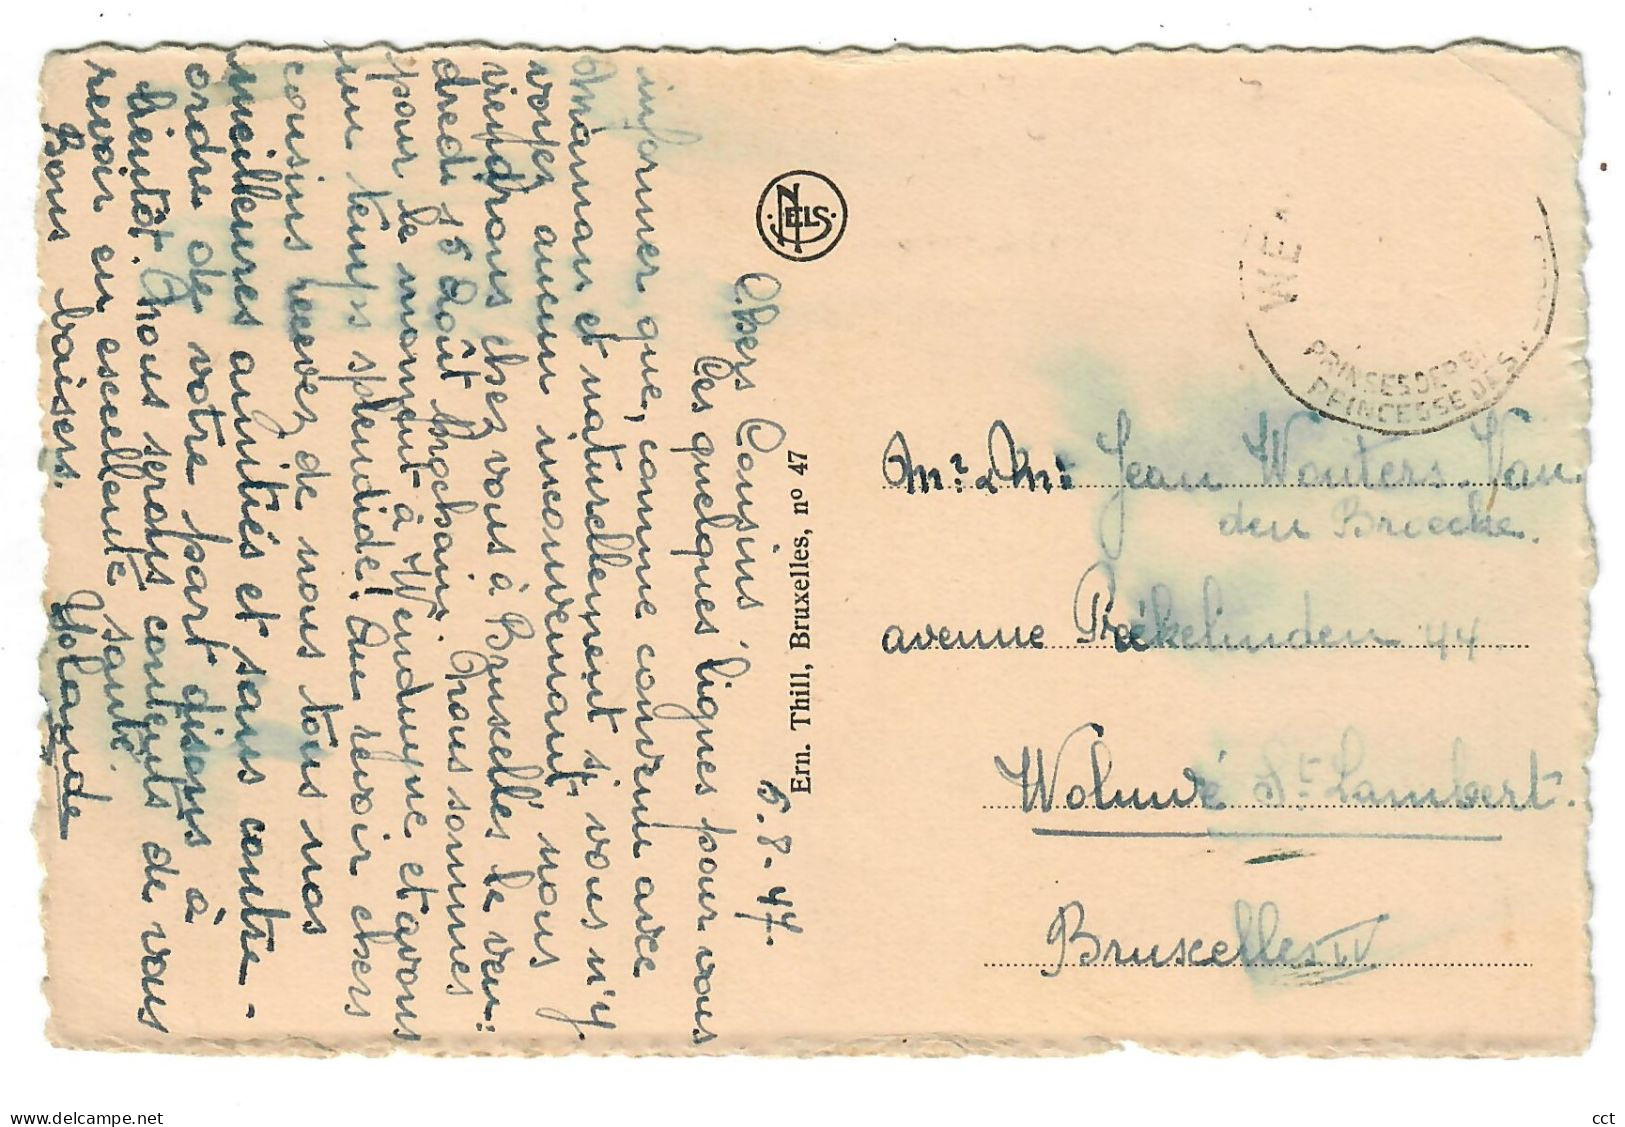 5.8-47.
Chers Cousins,
Ces quelques lignes pour vous
informer que, comme convenu avec
Maman et naturellement si vous n'y
voyez aucun inconvénient nous
viendrons chez vous à Bruxelles le ven:
dredi 15 Août prochain. Nous sommes
pour le moment à Wenduyne et avons
un temps splendide! Au revoir chers
cousins recevez de nous tous nos
meilleures amitiés et sans contre-
ordre de votre part disons à
bientôt. Nous serons contents de vous
revoir en excellente santé.
Bons baisers.
Yolande
NELS
Ern. Thill, Bruxelles, nº 47
WE
PRINSES DER B
PRINCESSE DES
Mr & Me Jean Wouters-Van
den Broecke.
avenue Prékelinden 44
Woluwé St Lambert.
Bruxelles IV
www.delcampe.net
cct